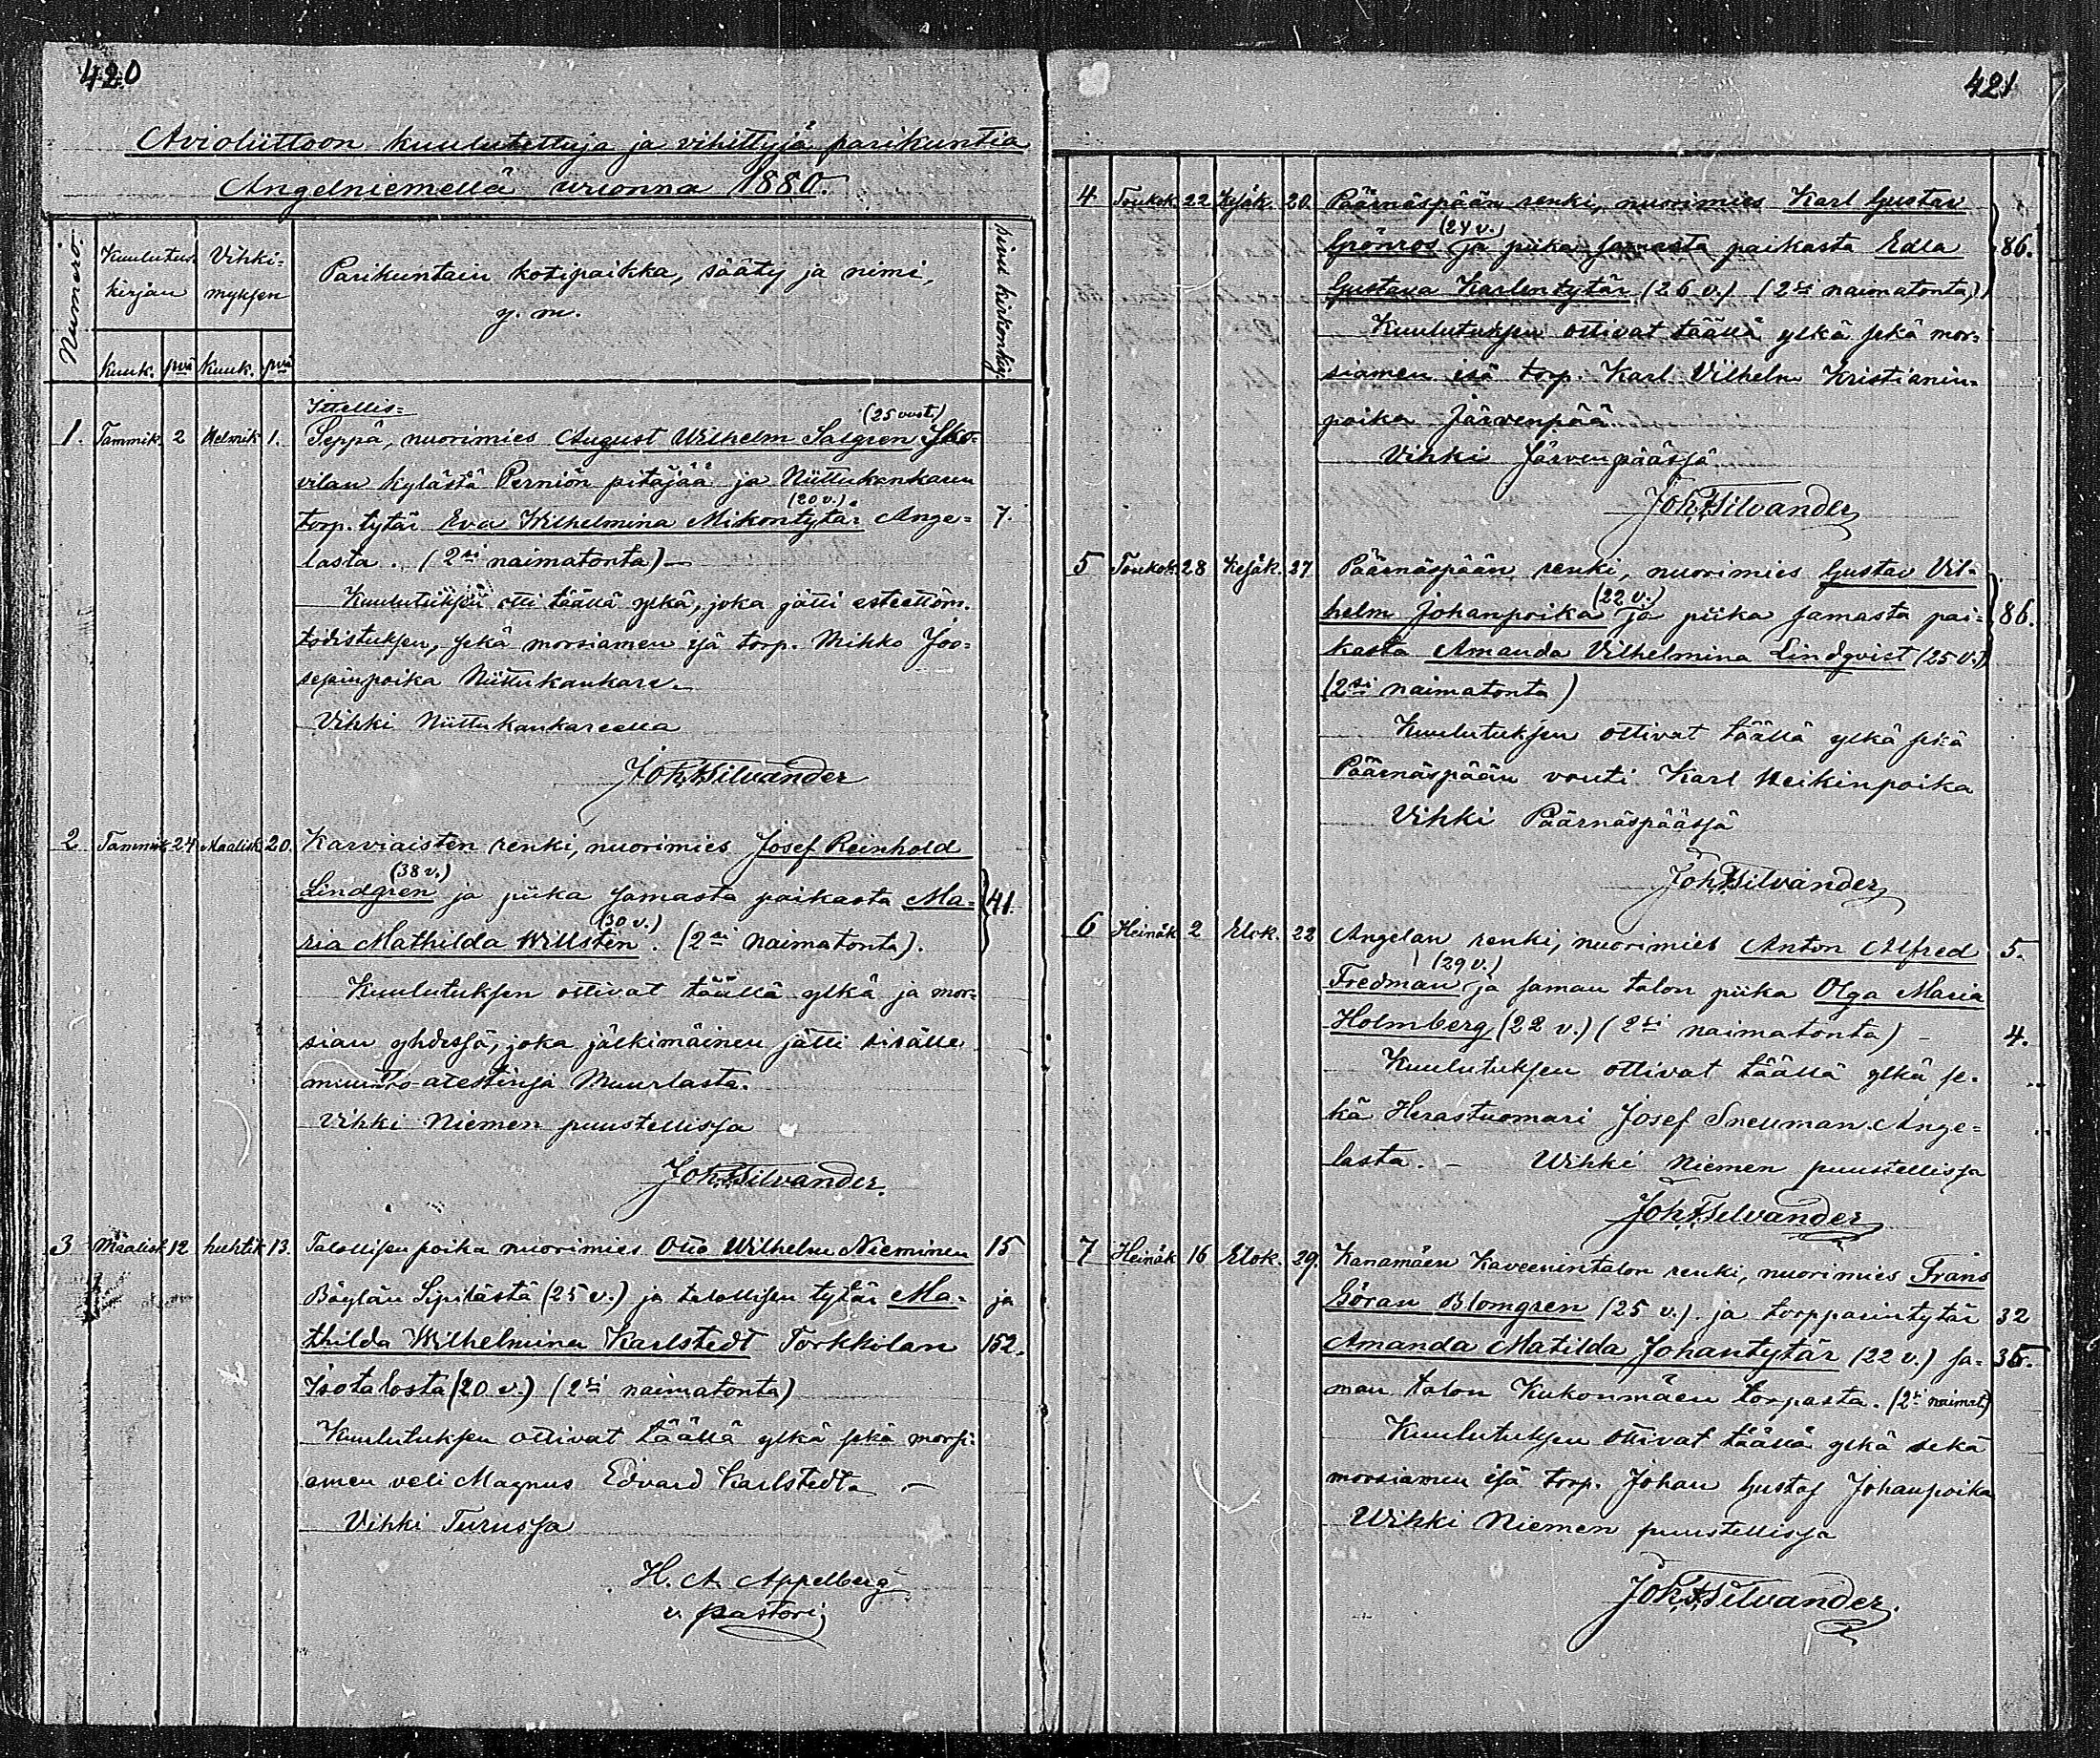 420
Avioliittoon kuulutettuja ja vihittyjä parikuntia
Angelniemellä vuonna 1880.
Numero.
Kuulutus-kirjan
Vihki-myksen
Parikuntain kotipaikka, sääty ja nimi,
y. m.
Sivut kirkonkirj.
Kuuk. pvä Kuuk. pvä
Ittellis= (25 vuot.)
1. Tammik. 2 Helmik 1. Seppä, nuorimies August Wilhelm Salgren
vilan kylästä Perniön pitäjää ja Niittukankaren
(20 v.)
torp. tytär Eva Wilhelmina Mikontytär Ange= 7.
lasta. (2si naimatonta) —
Kuulutuksen otti täällä ylkä, joka jätti esteettöm.
todistuksen, sekä morsiamen isä torp. Mikko Joo=
sepinpoika Niittukankare.
Vihki Niittukankareella
Joh. F. Silvander
2 Tammik 24 Maalisk 20. Karviaisten renki, nuorimies Josef Reinhold
(38 v.)
Lindgren ja piika samasta paikasta Ma= 41.
(30 v.)
ria Mathilda Willstén. (2si naimatonta).
Kuulutuksen ottivat täällä ylkä ja mor=
sian yhdessä, joka jälkimäinen jätti sisälle
muutto-atestinsa Muurlasta.
Vihki Niemen puustellissa
Joh. F. Silvander.
3 Maalisk 12 huhtik 13. Talollisen poika nuorimies Otto Wilhelm Nieminen 15
Böylän Sipilästä (25 v.) ja talollisen tytär Ma= ja
thilda Wilhelmina Karlstedt Torkkilan 152.
Isotalosta (20 v.) (2si naimatonta)
Kuulutuksen ottivat täällä ylkä sekä morsi=
amen veli Magnus Edvard Karlstedt. —
Vihki Turussa
H. A. Appelberg
v. pastori
421
4 Toukok 22 Kesäk. 20. Päärnäspään renki, nuorimies Karl Gustav
(24 v.)
Grönros ja piika samasta paikasta Edla 86.
Gustava Karlentytär (26 v.) (2si naimatonta)
Kuulutuksen ottivat täällä ylkä sekä mor=
siamen isä torp. Karl Vilhelm Kristianin=
poika Järvenpää
Vihki Järvenpäässä
Joh. F. Silvander
5 Toukok 28 Kesäk. 27 Päärnäspään renki, nuorimies Gustav Vil=
(22 v.)
helm Johanpoika ja piika samasta pai= 86.
kasta Amanda Vilhelmina Lindqvist (25 v.)
(2si naimatonta)
Kuulutuksen ottivat täällä ylkä sekä
Päärnäspään vouti Karl Heikinpoika
Vihki Päärnäspäässä
Joh. F. Silvander
6 Heinäk 2 Elok. 22 Angelan renki, nuorimies Anton Alfred 5.
(29 v.)
Fredman ja saman talon piika Olga Maria
Holmberg (22 v.) (2si naimatonta) — 4.
Kuulutuksen ottivat täällä ylkä se=
kä Herastuomari Josef Snellman Ange=
lasta. — Wihki Niemen puustellissa
Joh. F. Silvander
7 Heinäk 16 Elok. 29. Kanamäen Kaveerintalon renki, nuorimies Frans
Göran Blomgren (25 v.) ja torpparintytär 32
Amanda Matilda Johantytär (22 v.) sa= 35.
man talon Kukonmäen torpasta. (2si naimat)
Kuulutuksen ottivat täällä ylkä sekä
morsiamen isä torp. Johan Gustaf Johanpoika
Wihki Niemen puustellissa
Joh. F. Silvander.